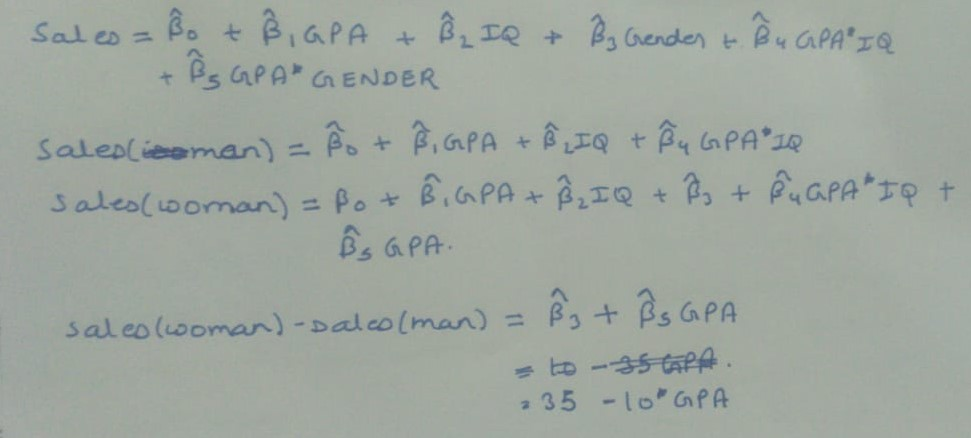 Sales = β̂₀ + β̂₁GPA + β̂₂IQ + β̂₃Gender + β̂₄GPA*IQ
+ β̂₅GPA*GENDER
Sales(man) = β̂₀ + β̂₁GPA + β̂₂IQ + β̂₄GPA*IQ
Sales(woman) = β₀ + β̂₁GPA + β̂₂IQ + β̂₃ + β̂₄GPA*IQ +
β̂₅GPA.
Sales(woman)-Sales(man) = β̂₃ + β̂₅GPA
= 10 - 35 GPA.
= 35 - 10*GPA